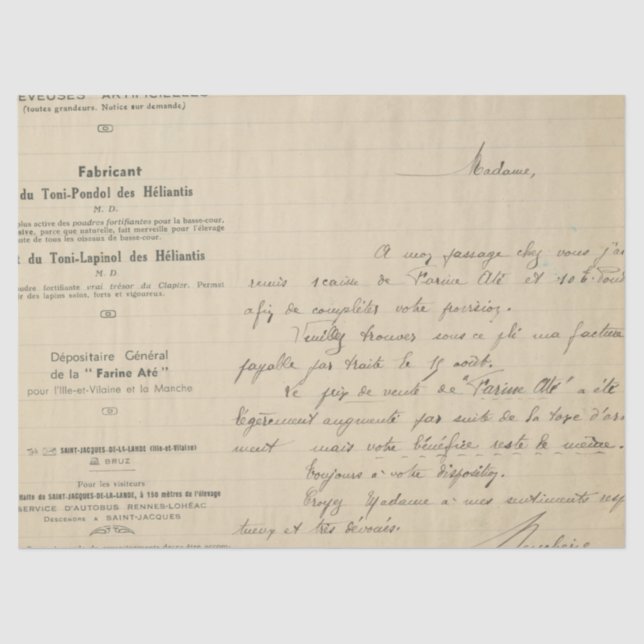 EVEUSES ARTIFICIELLES
(toutes grandeurs. Notice sur demande)
Fabricant
du Toni-Pondol des Héliantis
M. D.
plus active des poudres fortifiantes pour la basse-cour,
sive, parce que naturelle, fait merveille pour l'élevage
ute de tous les oiseaux de basse-cour.
t du Toni-Lapinol des Héliantis
M. D.
oudre fortifiante vrai trésor du Clapier. Permet
ir des lapins sains, forts et vigoureux.
Dépositaire Général
de la " Farine Até "
pour l'Ille-et-Vilaine et la Manche
SAINT-JACQUES-DE-LA-LANDE (Ille-et-Vilaine)
BRUZ
Pour les visiteurs
Halte du SAINT-JACQUES-DE-LA-LANDE, à 150 mètres de l'élevage
SERVICE D'AUTOBUS RENNES-LOHÉAC
DESCENDRE A SAINT-JACQUES
Madame,
A mon passage chez vous j'ai
remis 1 caisse de Farine Até et 10 
afin de compléter votre provision.
Veuillez trouver sous ce pli ma facture
payable par traite le 15 août.
Le prix de vente de "Farine Até" a été
légèrement augmenté par suite de la taxe d'ar
ment mais votre bénéfice reste de même.
Toujours à votre disposition.
Croyez Madame à mes sentiments resp
tueux et très dévoués.